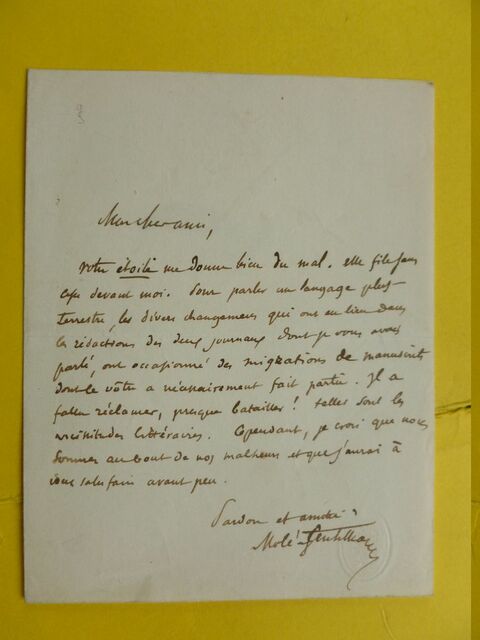 Mon cher ami,
votre étoile me donne bien du mal. elle file sans
cesse devant moi. Pour parler un langage plus
terrestre, les divers changemens qui ont eu lieu dans
les rédactions des deux journaux dont je vous avais
parlé, ont occasionné des migrations de manuscrits
dont le vôtre a nécessairement fait partie. Il a
fallu réclamer, presque batailler ! telles sont les
vicissitudes littéraires. Cependant, je crois que nous
sommes au bout de nos malheurs et que j'aurai à
vous satisfaire avant peu.
Pardon et amitié
Molé-Gentilhomme